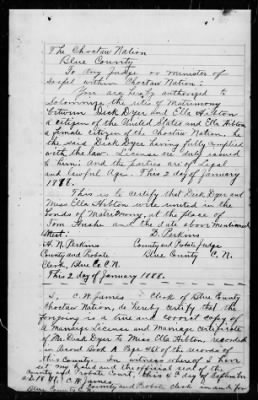 The Choctaw Nation
Blue County
To any Judge or Minister of
Gospel within Choctaw Nation:
You are hereby authorized to
Solemnize the rites of Matrimony
between Dick Dyer and Ella
a citizen of the United States and Ella
a female citizen of the Choctaw Nation, he
the said Dick Dyer having fully complied
with the law. License are duly issued
to him; and the parties are of Legal
and lawful Age. This 2 day of January
188
This is to certify that Dick Dyer and
Miss Ella were united in the
bonds of Matrimony, at the place of
Tom and the date above mentioned
D. Perkins
H. N. Perkins County and Probate Judge
County and Probate Blue County C. N.
Clerk, Blue Co C.N.
This 2 day of January 1888.
I, C. W. James Clerk of Blue County
Choctaw Nation, do hereby certify that the
forgoing is a true and correct copy of
a Marriage License and Marriage Certificate
of Mr. Dick Dyer to Miss Ella recorded
in Record Book Page of the records of
this County. In witness whereof I have
set my hand and the official seal of the
County and Probate Court, this 2 day of September
C. W. James
County and Probate Clerk in and for
Blue County C.